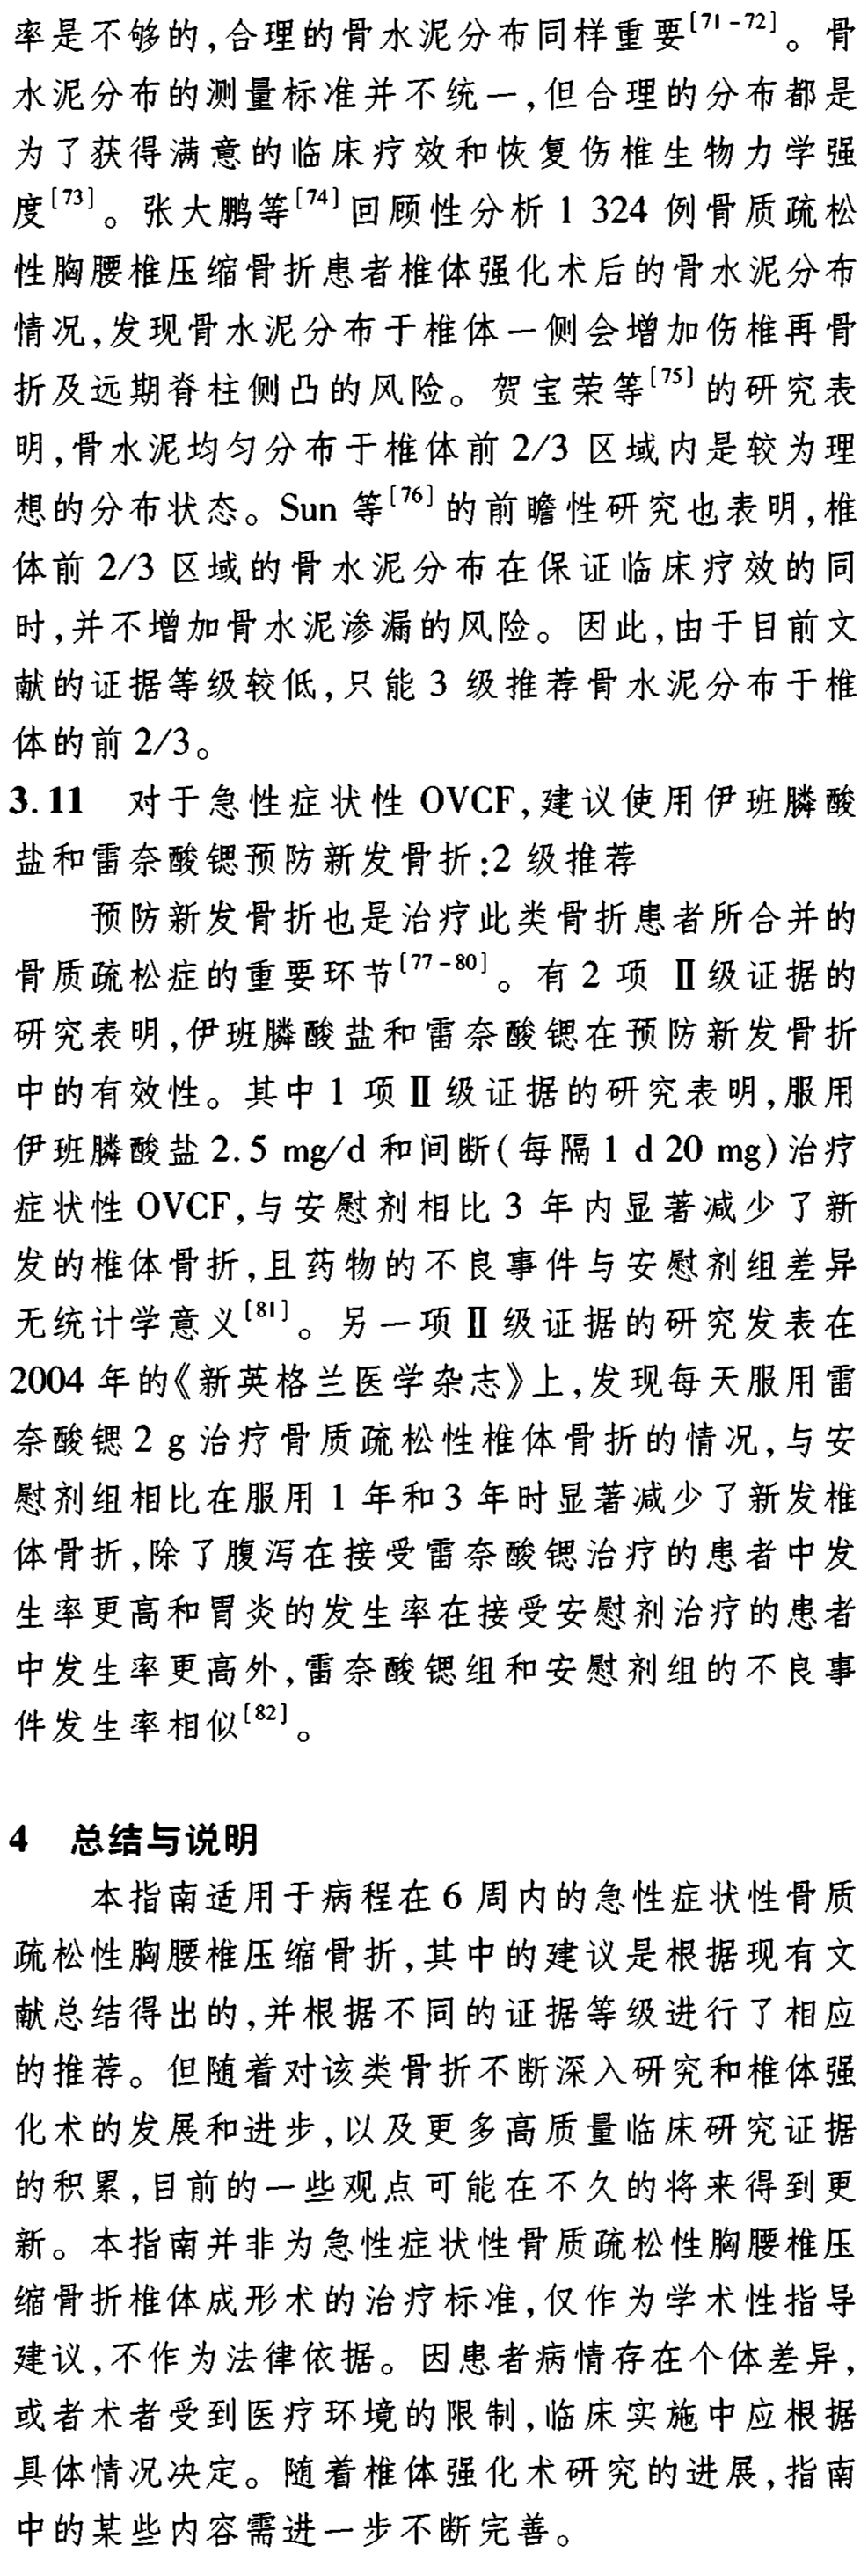 率是不够的,合理的骨水泥分布同样重要[71-72]。骨
水泥分布的测量标准并不统一,但合理的分布都是
为了获得满意的临床疗效和恢复伤椎生物力学强
度[73]。张大鹏等[74]回顾性分析 1 324 例骨质疏松
性胸腰椎压缩骨折患者椎体强化术后的骨水泥分布
情况,发现骨水泥分布于椎体一侧会增加伤椎再骨
折及远期脊柱侧凸的风险。贺宝荣等[75]的研究表
明,骨水泥均匀分布于椎体前 2/3 区域内是较为理
想的分布状态。Sun 等[76]的前瞻性研究也表明,椎
体前 2/3 区域的骨水泥分布在保证临床疗效的同
时,并不增加骨水泥渗漏的风险。因此,由于目前文
献的证据等级较低,只能 3 级推荐骨水泥分布于椎
体的前 2/3。
3.11 对于急性症状性 OVCF,建议使用伊班膦酸
盐和雷奈酸锶预防新发骨折:2 级推荐
预防新发骨折也是治疗此类骨折患者所合并的
骨质疏松症的重要环节[77-80]。有 2 项 Ⅱ级证据的
研究表明,伊班膦酸盐和雷奈酸锶在预防新发骨折
中的有效性。其中 1 项Ⅱ级证据的研究表明,服用
伊班膦酸盐 2.5 mg/d 和间断(每隔 1 d 20 mg)治疗
症状性 OVCF,与安慰剂相比 3 年内显著减少了新
发的椎体骨折,且药物的不良事件与安慰剂组差异
无统计学意义[81]。另一项Ⅱ级证据的研究发表在
2004 年的《新英格兰医学杂志》上,发现每天服用雷
奈酸锶 2 g 治疗骨质疏松性椎体骨折的情况,与安
慰剂组相比在服用 1 年和 3 年时显著减少了新发椎
体骨折,除了腹泻在接受雷奈酸锶治疗的患者中发
生率更高和胃炎的发生率在接受安慰剂治疗的患者
中发生率更高外,雷奈酸锶组和安慰剂组的不良事
件发生率相似[82]。
4 总结与说明
本指南适用于病程在 6 周内的急性症状性骨质
疏松性胸腰椎压缩骨折,其中的建议是根据现有文
献总结得出的,并根据不同的证据等级进行了相应
的推荐。但随着对该类骨折不断深入研究和椎体强
化术的发展和进步,以及更多高质量临床研究证据
的积累,目前的一些观点可能在不久的将来得到更
新。本指南并非为急性症状性骨质疏松性胸腰椎压
缩骨折椎体成形术的治疗标准,仅作为学术性指导
建议,不作为法律依据。因患者病情存在个体差异,
或者术者受到医疗环境的限制,临床实施中应根据
具体情况决定。随着椎体强化术研究的进展,指南
中的某些内容需进一步不断完善。